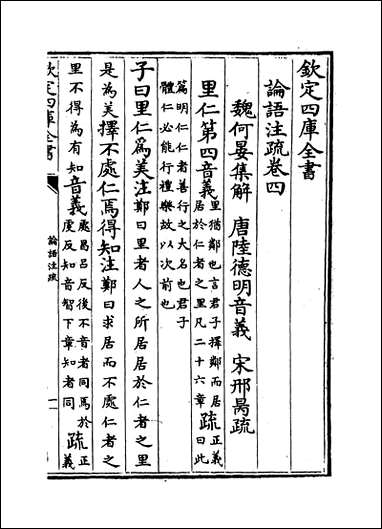 欽定四庫全書
論語注疏卷四
魏何晏集解 唐陸德明音義 宋邢昺疏
里仁第四音義里猶鄰也言君子擇鄰而居居於仁者之里凡二十六章疏正義曰此
篇明仁仁者善行之大名也君子體仁必能行禮樂故以次前也
子曰里仁為美注鄭曰里者人之所居居於仁者之里
是為美擇不處仁焉得知注鄭曰求居而不處仁者之
里不得為有知音義處昌呂反後不音者同焉於虔反知音智下章知者同疏正義
欽定四庫全書
論語注疏
一